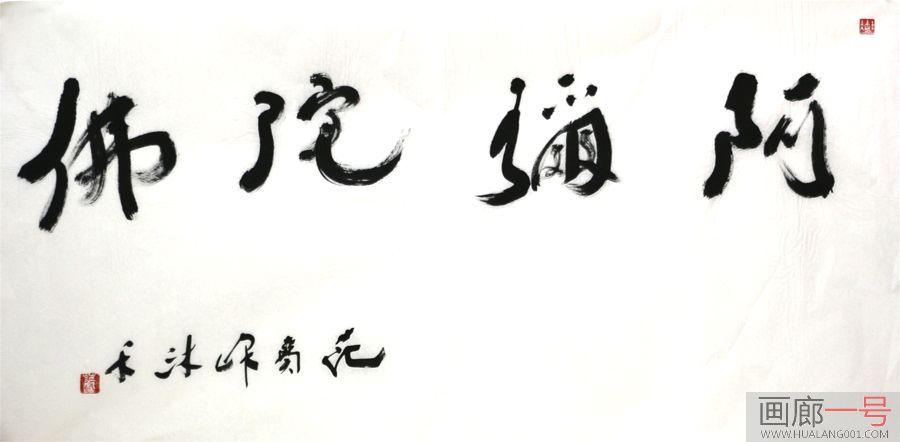 阿彌陀佛
沐手
画廊一号
WWW.HUALANG001.COM